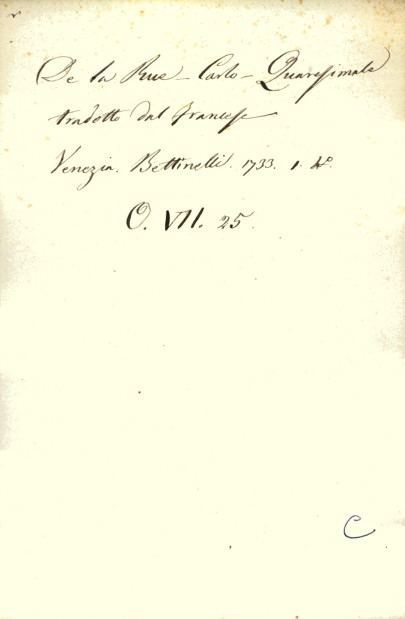 De la Rue - Carlo - Quaresimale
tradotto dal francese
Venezia. Bettinelli. 1733. 1. 4º.
O. VII. 25.
C